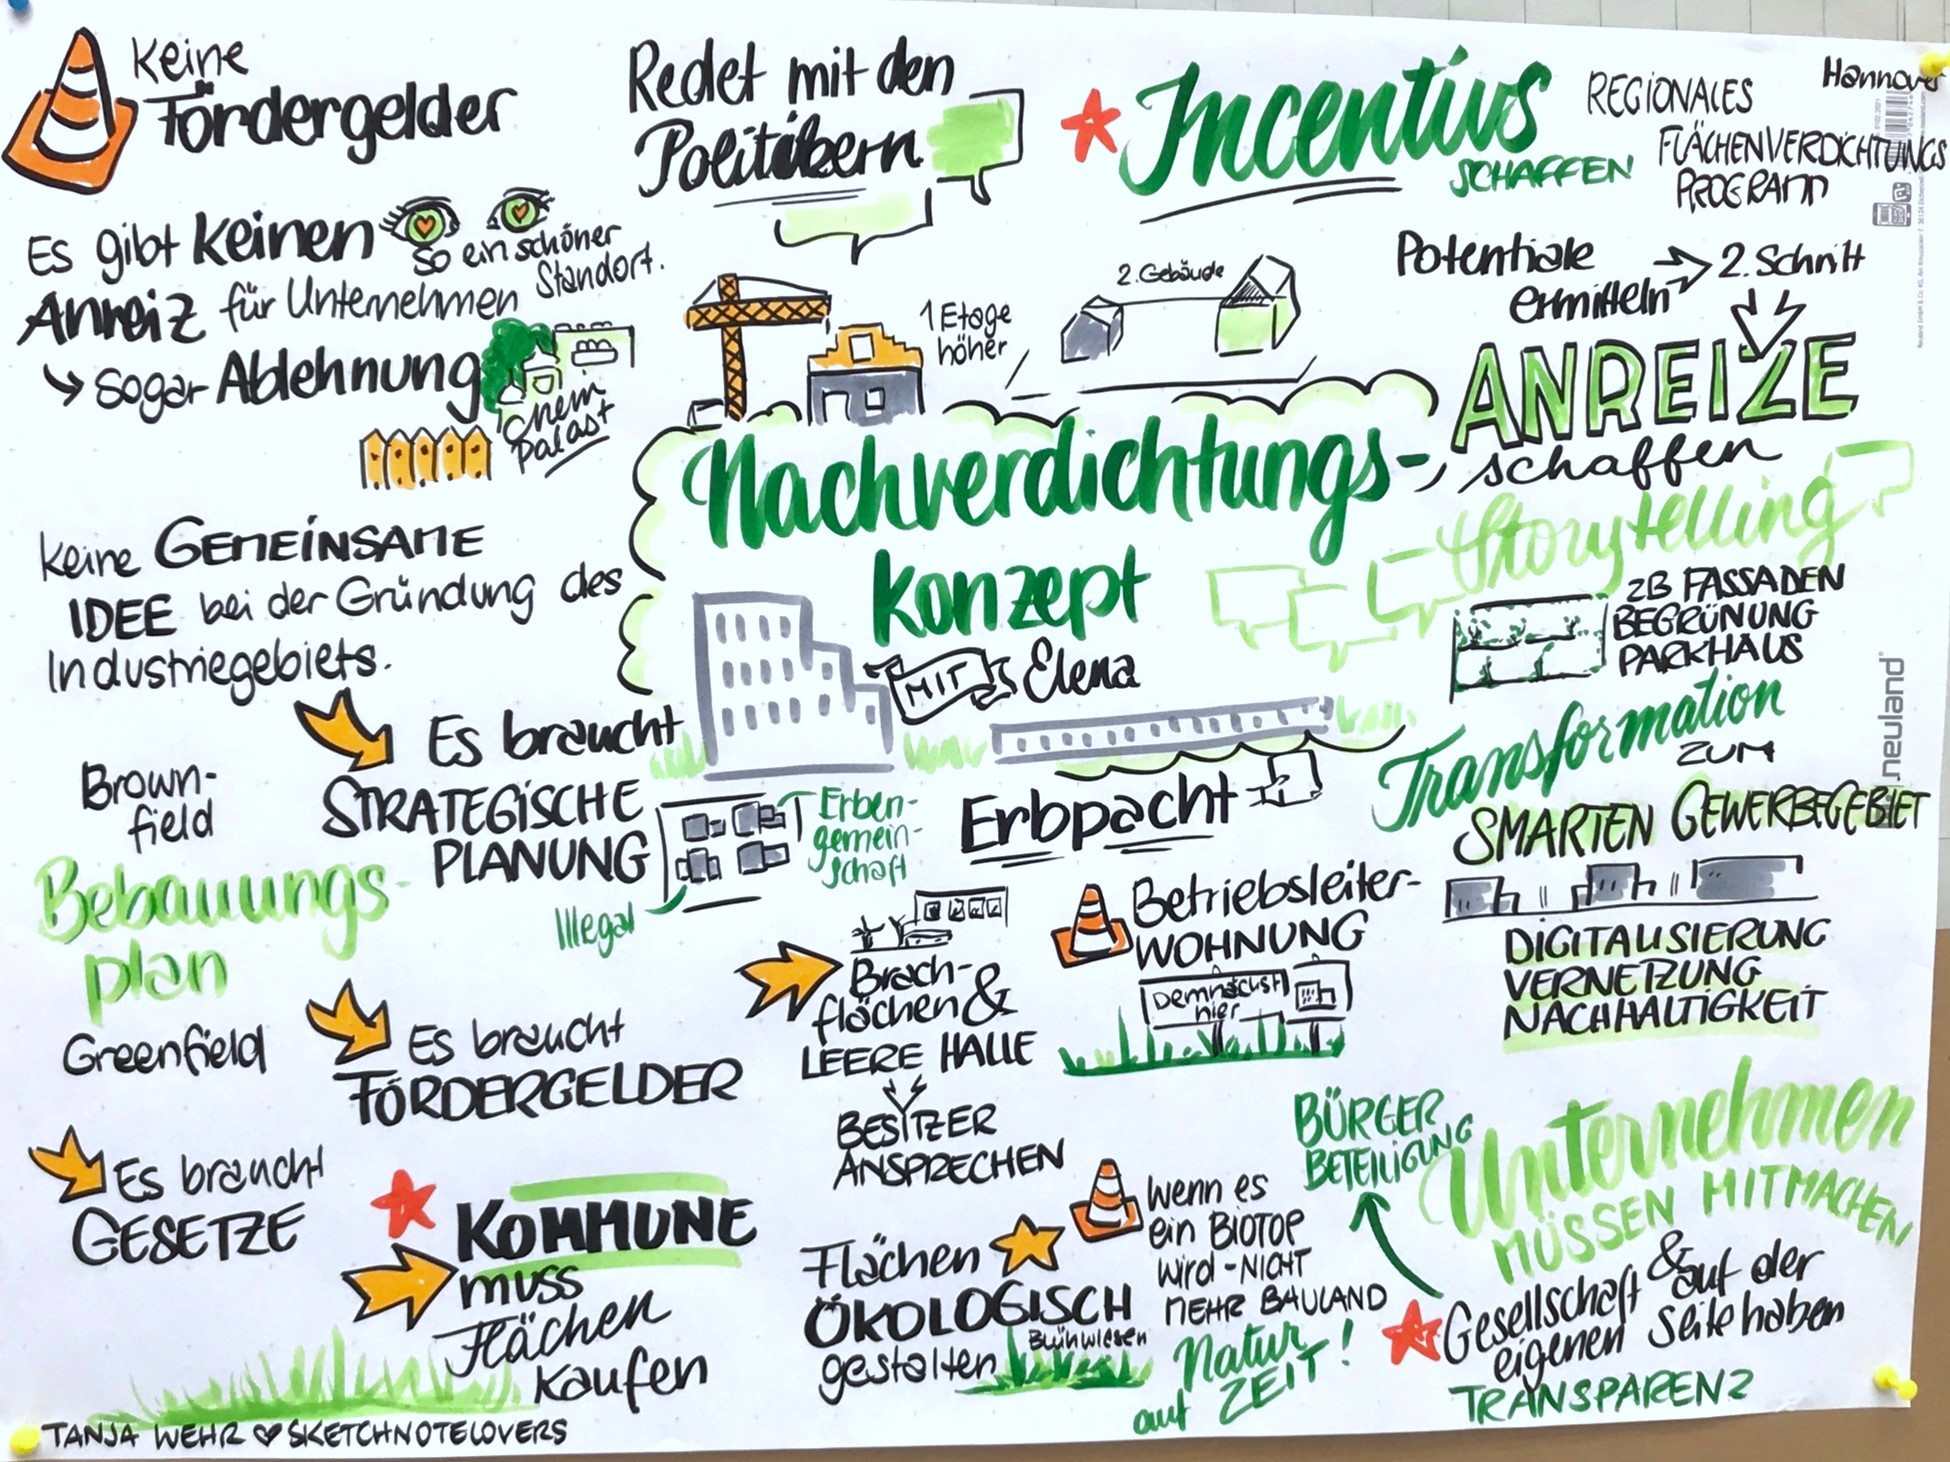 Keine
Fördergelder
Es gibt keinen
Anreiz für Unternehmen
sogar Ablehnung
So ein schöner
Standort.
Chem
Palast
Keine GEMEINSAME
IDEE bei der Gründung des
Industriegebiets.
Es braucht
STRATEGISCHE
PLANUNG
Illegal
Erben-
gemein-
schaft
Brown-
field
Bebauungs-
plan
Greenfield
Es braucht
FÖRDERGELDER
Es braucht
GESETZE
KOMMUNE
muss
Flächen
kaufen
TANJA WEHR SKETCHNOTELOVERS
Redet mit den
Politikern
1 Etage
höher
2. Gebäude
Nachverdichtungs-
konzept
MIT Elena
Erbpacht
Brach-
flächen &
LEERE HALLE
BESITZER
ANSPRECHEN
Betriebsleiter-
WOHNUNG
Demnächst
hier
Flächen
ÖKOLOGISCH
gestalten
Blühwiesen
Wenn es
ein BIOTOP
wird - NICHT
MEHR BAULAND
Natur
auf ZEIT!
Incentivs
SCHAFFEN
REGIONALES
FLÄCHENVERDICHTUNGS
PROGRAMM
Hannover
Potentiale
ermitteln
2. Schritt
ANREIZE
schaffen
Storytelling
ZB FASSADEN
BEGRÜNUNG
PARKHAUS
Transformation
ZUM
SMARTEN GEWERBEGEBIET
DIGITALISIERUNG
VERNETZUNG
NACHHALTIGKEIT
neuland
BÜRGER
BETEILIGUNG
Unternehmen
MÜSSEN MITMACHEN
Gesellschaft & auf der
eigenen Seite haben
TRANSPARENZ